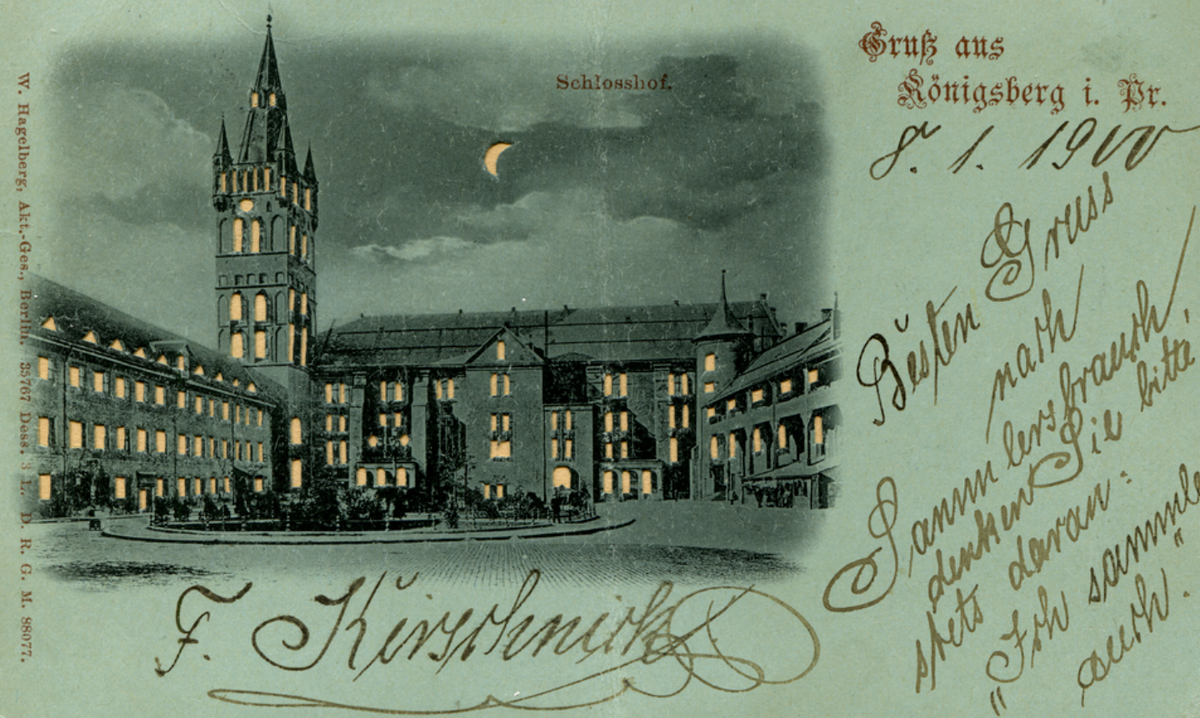 Gruß aus
Königsberg i. Pr.
Schlosshof.
8. 1. 1900
Besten Gruss
nach
Sammlersbrauch,
denken Sie bitte
stets daran:
"Ich sammle
auch."
F. Kirschnick
W. Hagelberg, Akt.-Ges., Berlin. 35767 Dess. 3 L. D. R. G. M. 88077.